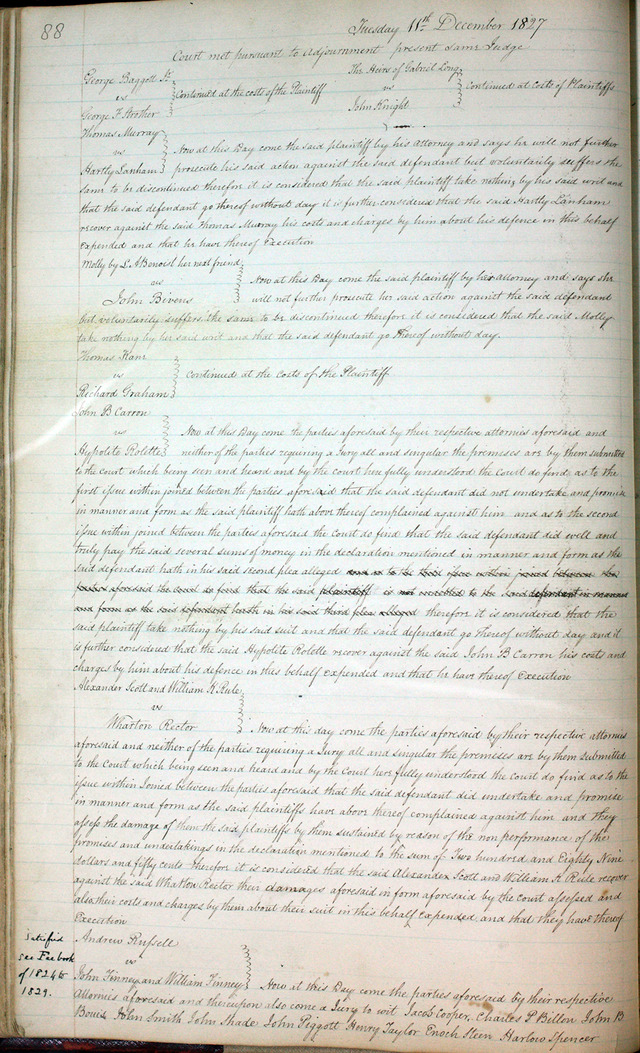 88
Tuesday 11th December 1827
Court met pursuant to Adjournment present same Judge
George Baggott Jr.
vs
George F Strother
Continued at the costs of the Plaintiff
The Heirs of Gabriel Long
vs
John Knight
continued at Costs of Plaintiffs
Thomas Murray
vs
Hartly Lanham
Now at this Day come the said plaintiff by his Attorney and says he will not further
prosecute his said action against the said defendant but voluntarily suffers the
same to be discontinued therefor it is considered that the said plaintiff take nothing by his said writ and
that the said defendant go thereof without day it is further considered that the said Hartly Lanham
recover against the said Thomas Murray his costs and charges by him about his defence in this behalf
expended and that he have thereof Execution
Molly by L. A Benoist her next friend
vs
John Bivens
Now at this Day come the said plaintiff by her attorney and says she
will not further prosecute her said action against the said defendant
but voluntarily suffers the same to be discontinued therefore it is considered that the said Molly
take nothing by her said writ and that the said defendant go thereof without day.
Thomas Hane
vs
Richard Graham
Continued at the Costs of the Plaintiff
John B Carron
vs
Hypolite Rolette
Now at this Day come the parties aforesaid by their respective attornies aforesaid and
neither of the parties requiring a Jury all and singular the premises are by them submitted
to the Court which being seen and heard and by the court here fully understood the Court do find as to the
first issue within joined between the parties aforesaid that the said defendant did not undertake and promise
in manner and form as the said plaintiff hath above thereof complained against him and as to the second
issue within joined between the parties aforesaid the Court do find that the said defendant did well and
truly pay the said several sums of money in the declaration mentioned in manner and form as the
said defendant hath in his said second plea alleged and as to the third issue within joined between the
parties aforesaid the Court do find that the said plaintiff is not indebted to the said defendant in manner
and form as the said defendant hath in his said third plea alleged therefore it is considered that the
said plaintiff take nothing by his said suit and that the said defendant go thereof without day and it
is further considered that the said Hypolite Rolette recover against the said John B Carron his costs and
charges by him about his defence in this behalf expended and that he have thereof Execution
Alexander Scott and William K Rule
vs
Wharton Rector
Now at this day come the parties aforesaid by their respective attornies
aforesaid and neither of the parties requiring a Jury all and singular the premises are by them submitted
to the Court which being seen and heard and by the Court here fully understood the Court do find as to the
issue within Joined between the parties aforesaid that the said defendant did undertake and promise
in manner and form as the said plaintiffs have above thereof complained against him and they
assess the damage of them the said plaintiffs by them sustained by reason of the non performance of the
promises and undertakings in the declaration mentioned to the sum of Two hundred and Eighty Nine
dollars and fifty cents therefore it is considered that the said Alexander Scott and William K Rule recover
against the said Wharton Rector their damages aforesaid in form aforesaid by the Court assessed and
also their costs and charges by them about their suit in this behalf Expended and that they have thereof
Execution
Satisfied
see Fee book
of 1824 to
1829.
Andrew Russell
vs
John Finney and William Finney
Now at this Day come the parties aforesaid by their respective
Attornies aforesaid and thereupon also come a Jury to wit Jacob Cooper, Charles P Billon John B
Bouis John Smith John Shade John Piggott Henry Taylor Enoch Steen Harlow Spencer